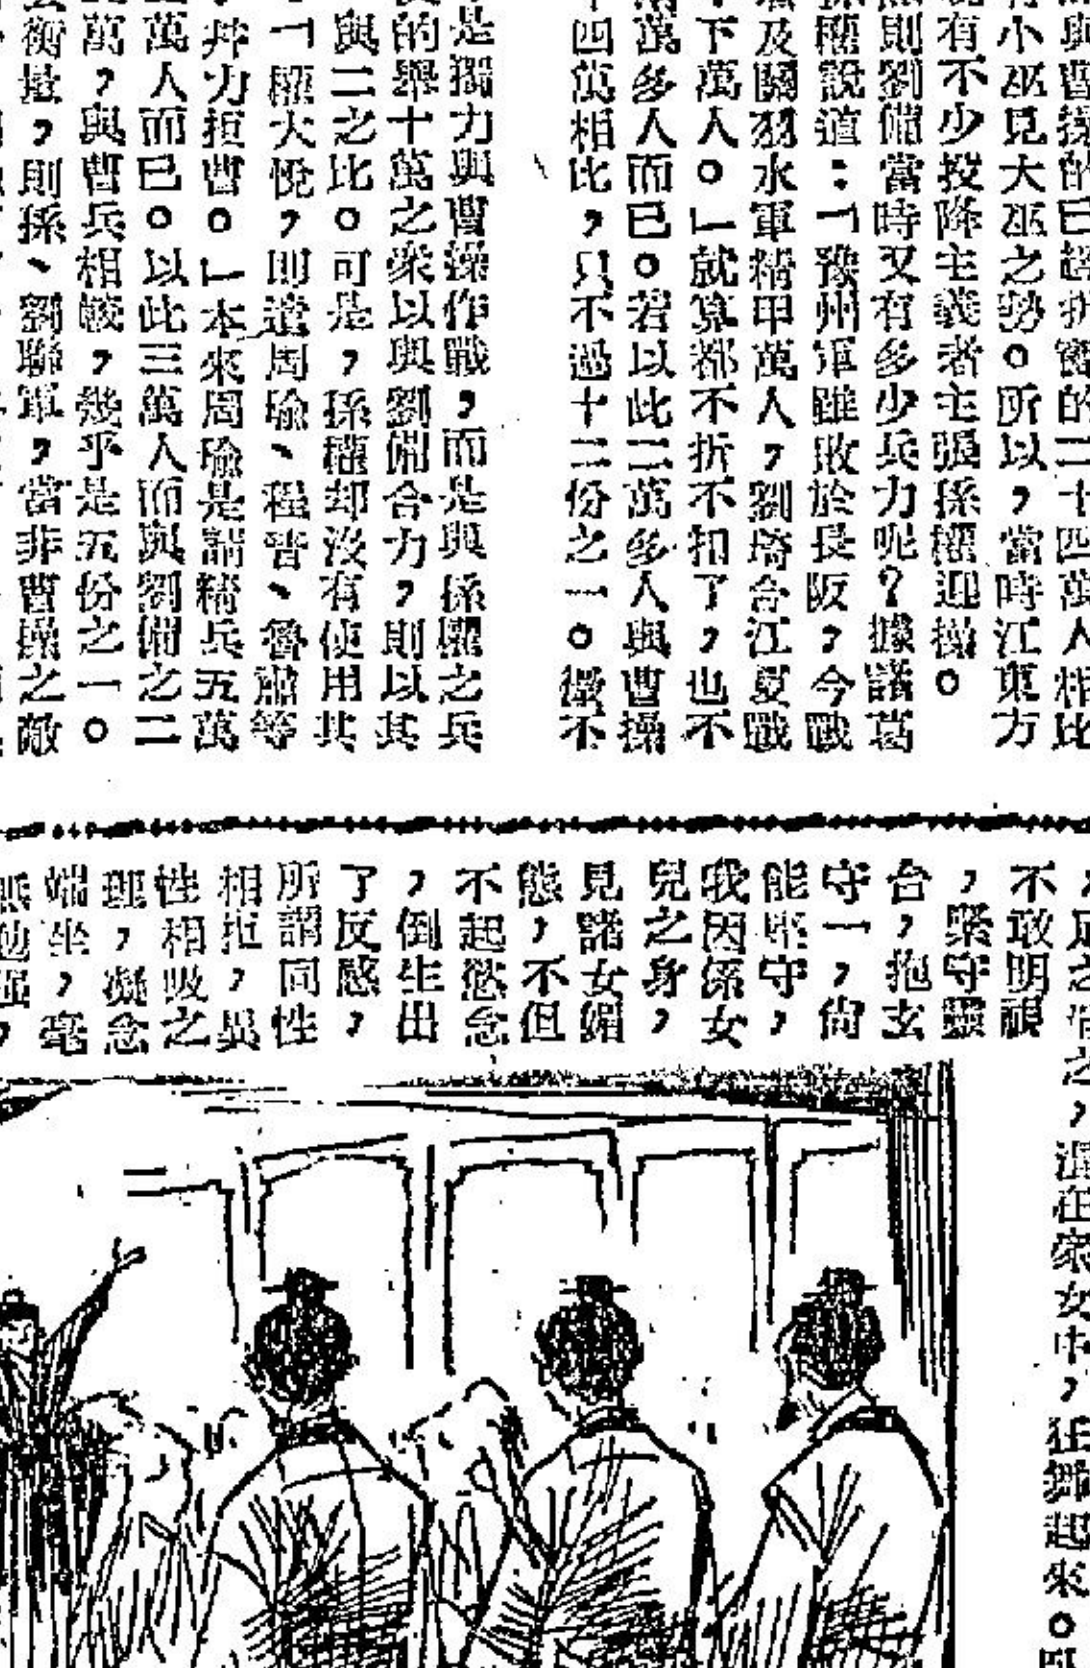 與曹操的已超扩軍的二十四萬人相比
有小巫見大巫之勢。所以，當時江東方
有不少投降主義者主張孫權迎操。
則劉備當時又有多少兵力呢？據諸葛
孫權說道：「豫州軍雖敗於長阪，今戰
及關羽水軍精甲萬人，劉琦合江夏戰
下萬人。」就算都不折不扣了，也不
萬多人而已。若以此二萬多人與曹操
十四萬相比，只不過十二份之一。
是獨力與曹操作戰，而是與孫權之兵
的舉十萬之衆以與劉備合力，則以其
與二之比。可是，孫權却沒有使用其
「權大悅，則遣周瑜、程普、魯肅等
并力拒曹。」本來周瑜是請精兵五萬
萬人而已。以此三萬人而與劉備之二
萬，與曹兵相較，幾乎是五份之一。
衡量，則孫、劉聯軍，當非曹操之敵
之，混在衆女中，狂舞起來。
不敢明視
，緊守靈
台，抱玄
守一，尙
能堅守，
我因係女
兒之身，
見諸女媚
態，不但
不起慾念
，倒生出
了反感，
所謂同性
相拒，異
性相吸之
理，凝念
端坐，毫
無勉强，